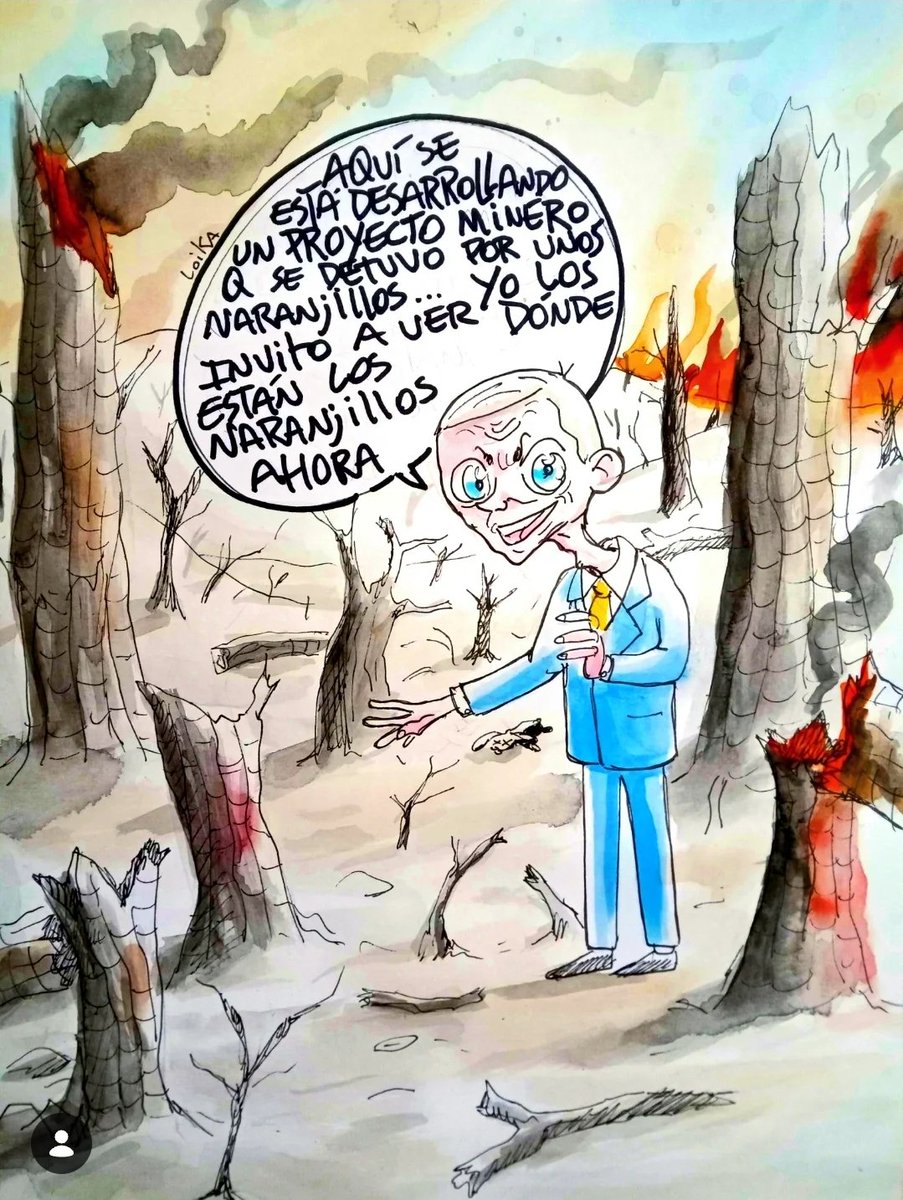 AQUÍ SE
ESTÁ DESARROLLANDO
UN PROYECTO MINERO
Q SE DETUVO POR UNOS
NARANJILLOS... YO LOS
INVITO A VER DÓNDE
ESTÁN LOS
NARANJILLOS
AHORA
LOIKA